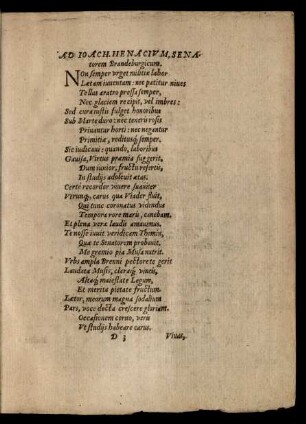 AD IOACH. HENACIVM, SENA-
torem Brandeburgicum.
NOn semper vrget nubila labor
Lætam iuuentam: nec patitur niues
Tellus aratro pressa semper,
Nec glaciem recipit, vel imbres:
Sed cura iustis fulget honoribus
Sub Marte duro: nec teneris rosis
Priuantur horti: nec negantur
Primitiæ, reditusq́; semper.
Sic iudicaui: quando, laboribus
Gauisa, Virtus præmia suggerit,
Dum iunior, fructu referctis,
In studijs adoleuit ætas.
Certè recordor viuere suauiter
Vtrunq́;, carus qua Viader fluit,
Qui tunc coronatus viridus
Tempora rore maris, canebam.
Et plena veræ laudis amauimus.
Te nosse iuuit veridicam Themin,
Qua te Senatorem probauit,
Me gremio pia Musa nutrit.
Vrbs ampla Brenni pectore te gerit
Laudata Musis, claraq́; vinctis,
Altaq́; maiestate Legum,
Et merita pietate fructum.
Lætor, meorum magna sodalium
Pars, voce docta crescere gloriam.
Occasionem cerno, veris
Vt studijs habeare carus.
D 3 Viuat,